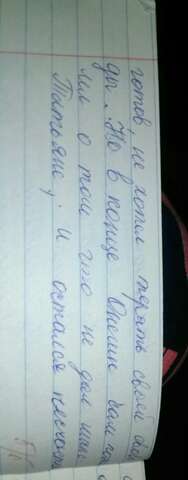 готов, не хотел терять своей
ды. Но в конце Онегин
лил о том что не дал
Татьяне, и остался несчаст